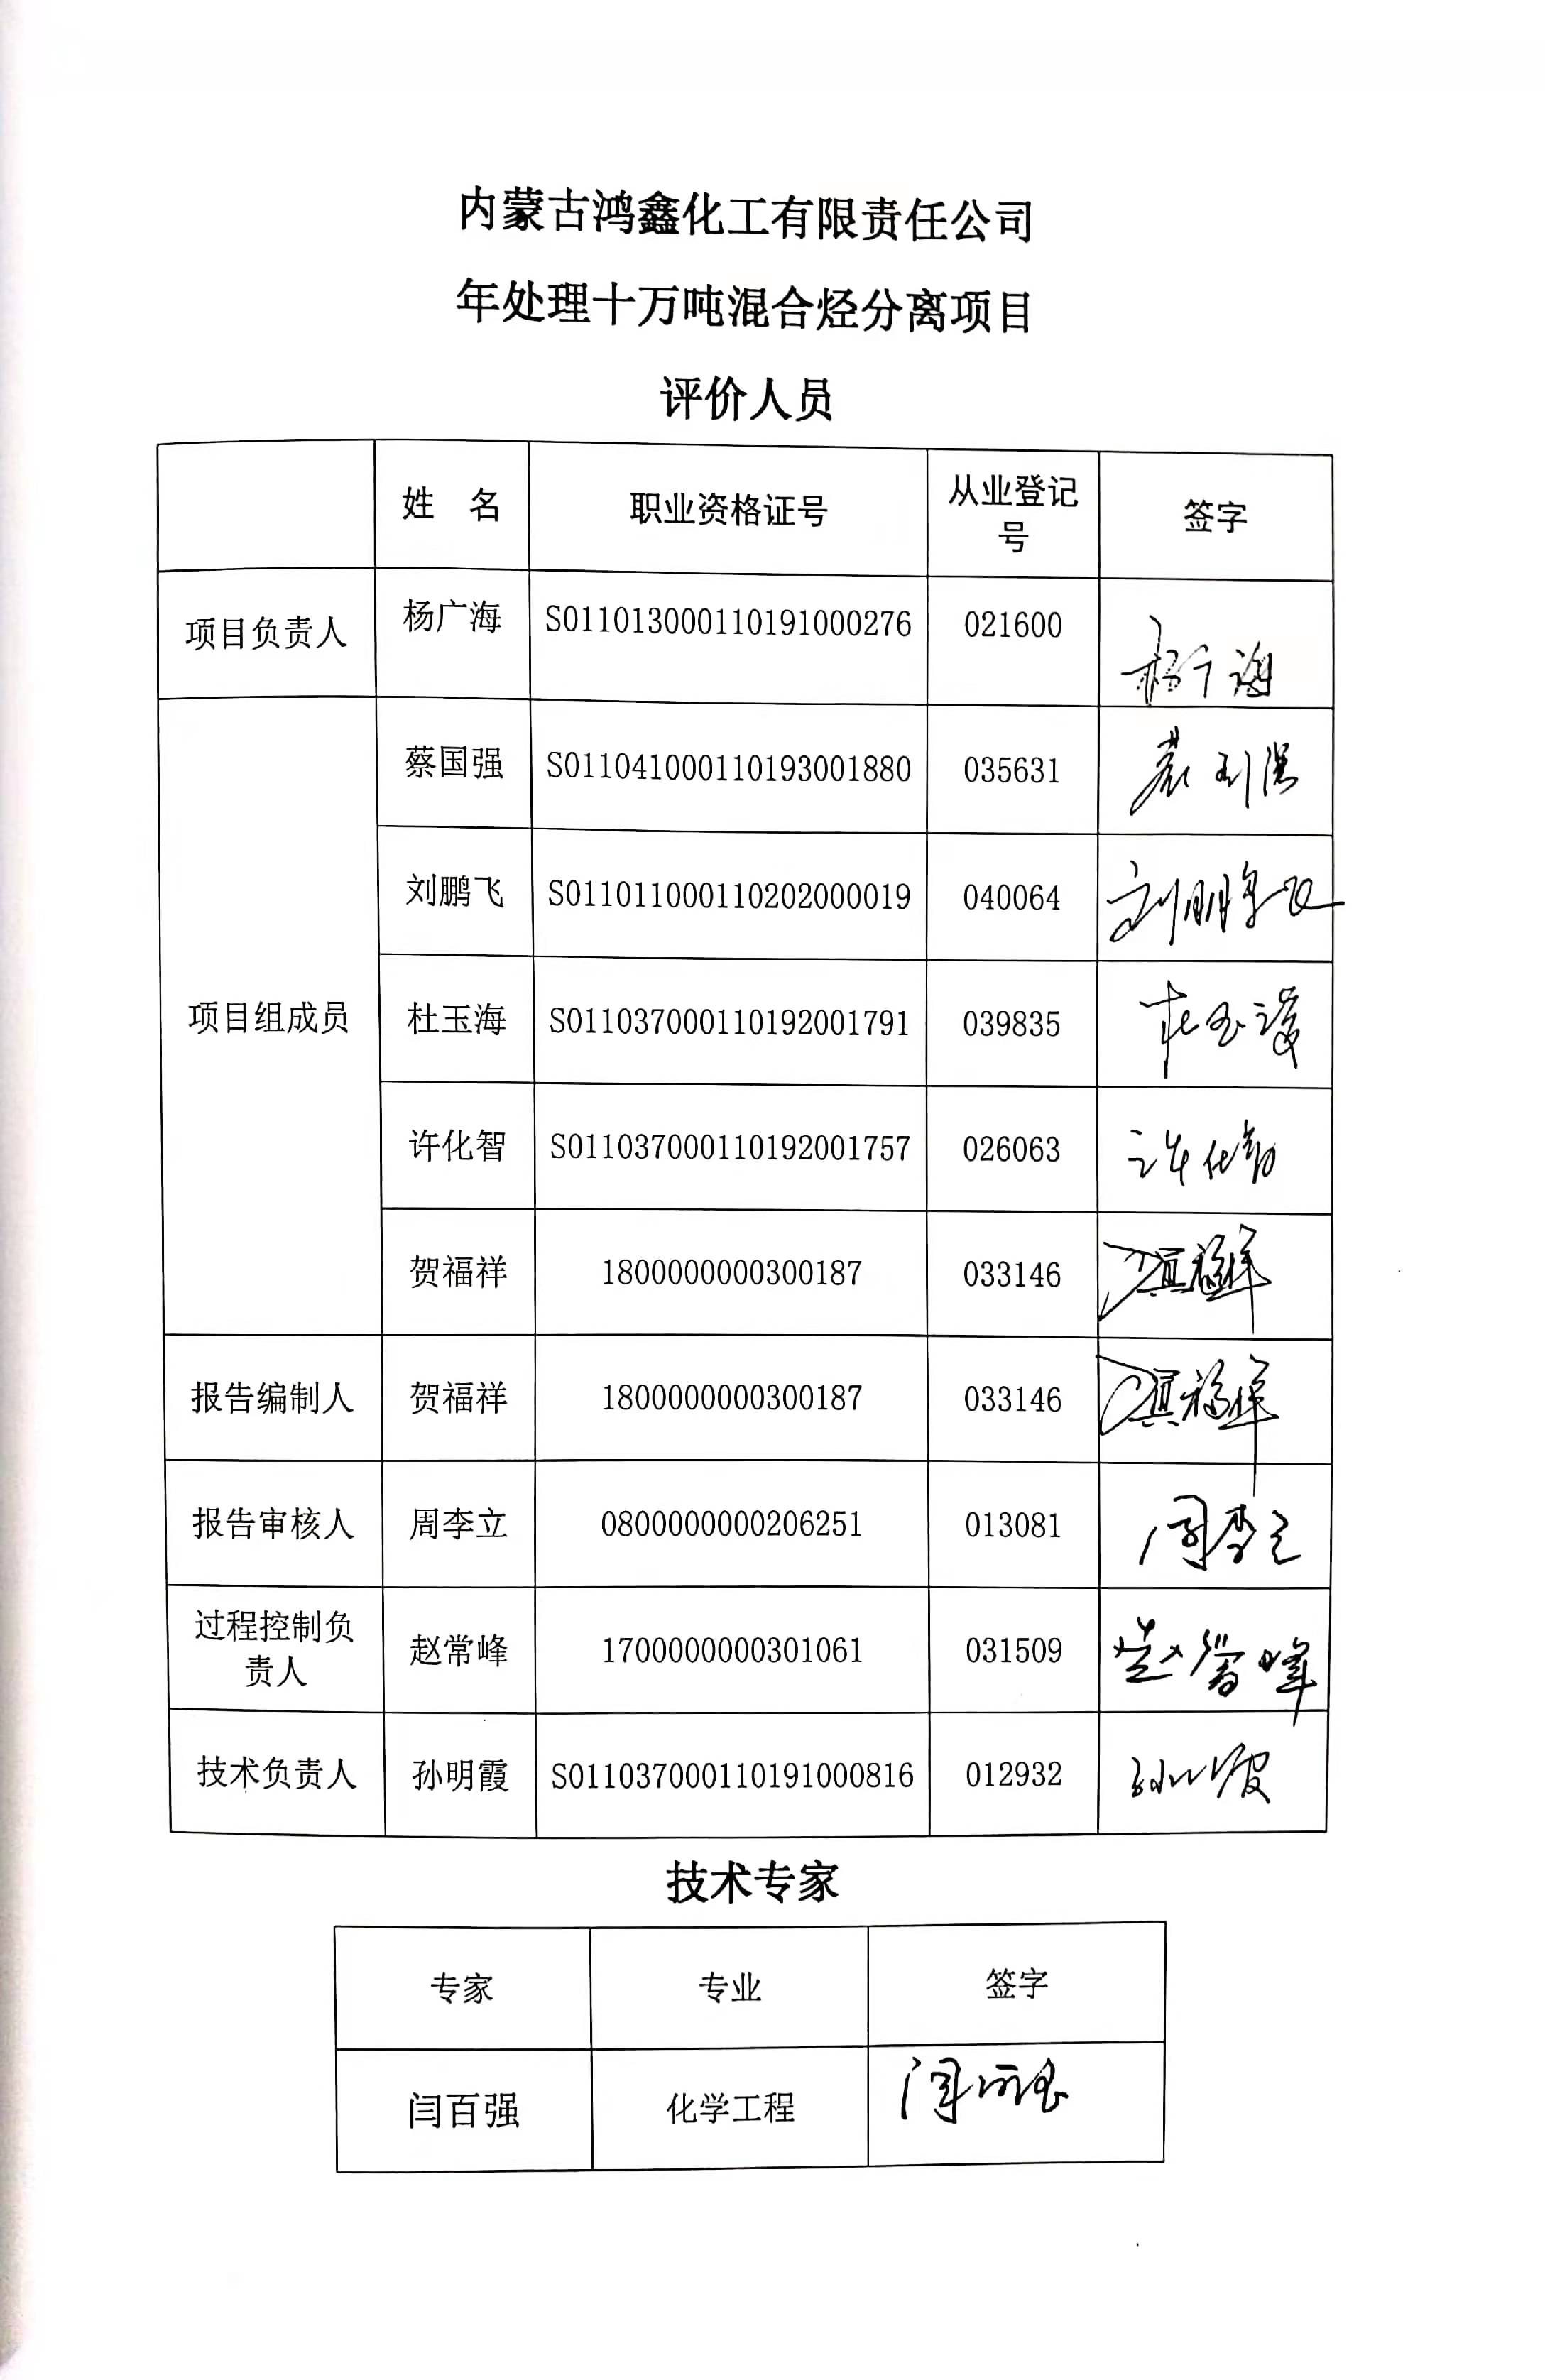 内蒙古鸿鑫化工有限责任公司
年处理十万吨混合烃分离项目
评价人员
姓 名 职业资格证号 从业登记号 签字
项目负责人 杨广海 S011013000110191000276 021600 杨广海
项目组成员
蔡国强 S011041000110193001880 035631
刘鹏飞 S011011000110202000019 040064 刘鹏飞
杜玉海 S011037000110192001791 039835 杜玉海
许化智 S011037000110192001757 026063 许化智
贺福祥 1800000000300187 033146 贺福祥
报告编制人 贺福祥 1800000000300187 033146 贺福祥
报告审核人 周李立 0800000000206251 013081 周李立
过程控制负责人 赵常峰 1700000000301061 031509 赵常峰
技术负责人 孙明霞 S011037000110191000816 012932
技术专家
专家 专业 签字
闫百强 化学工程